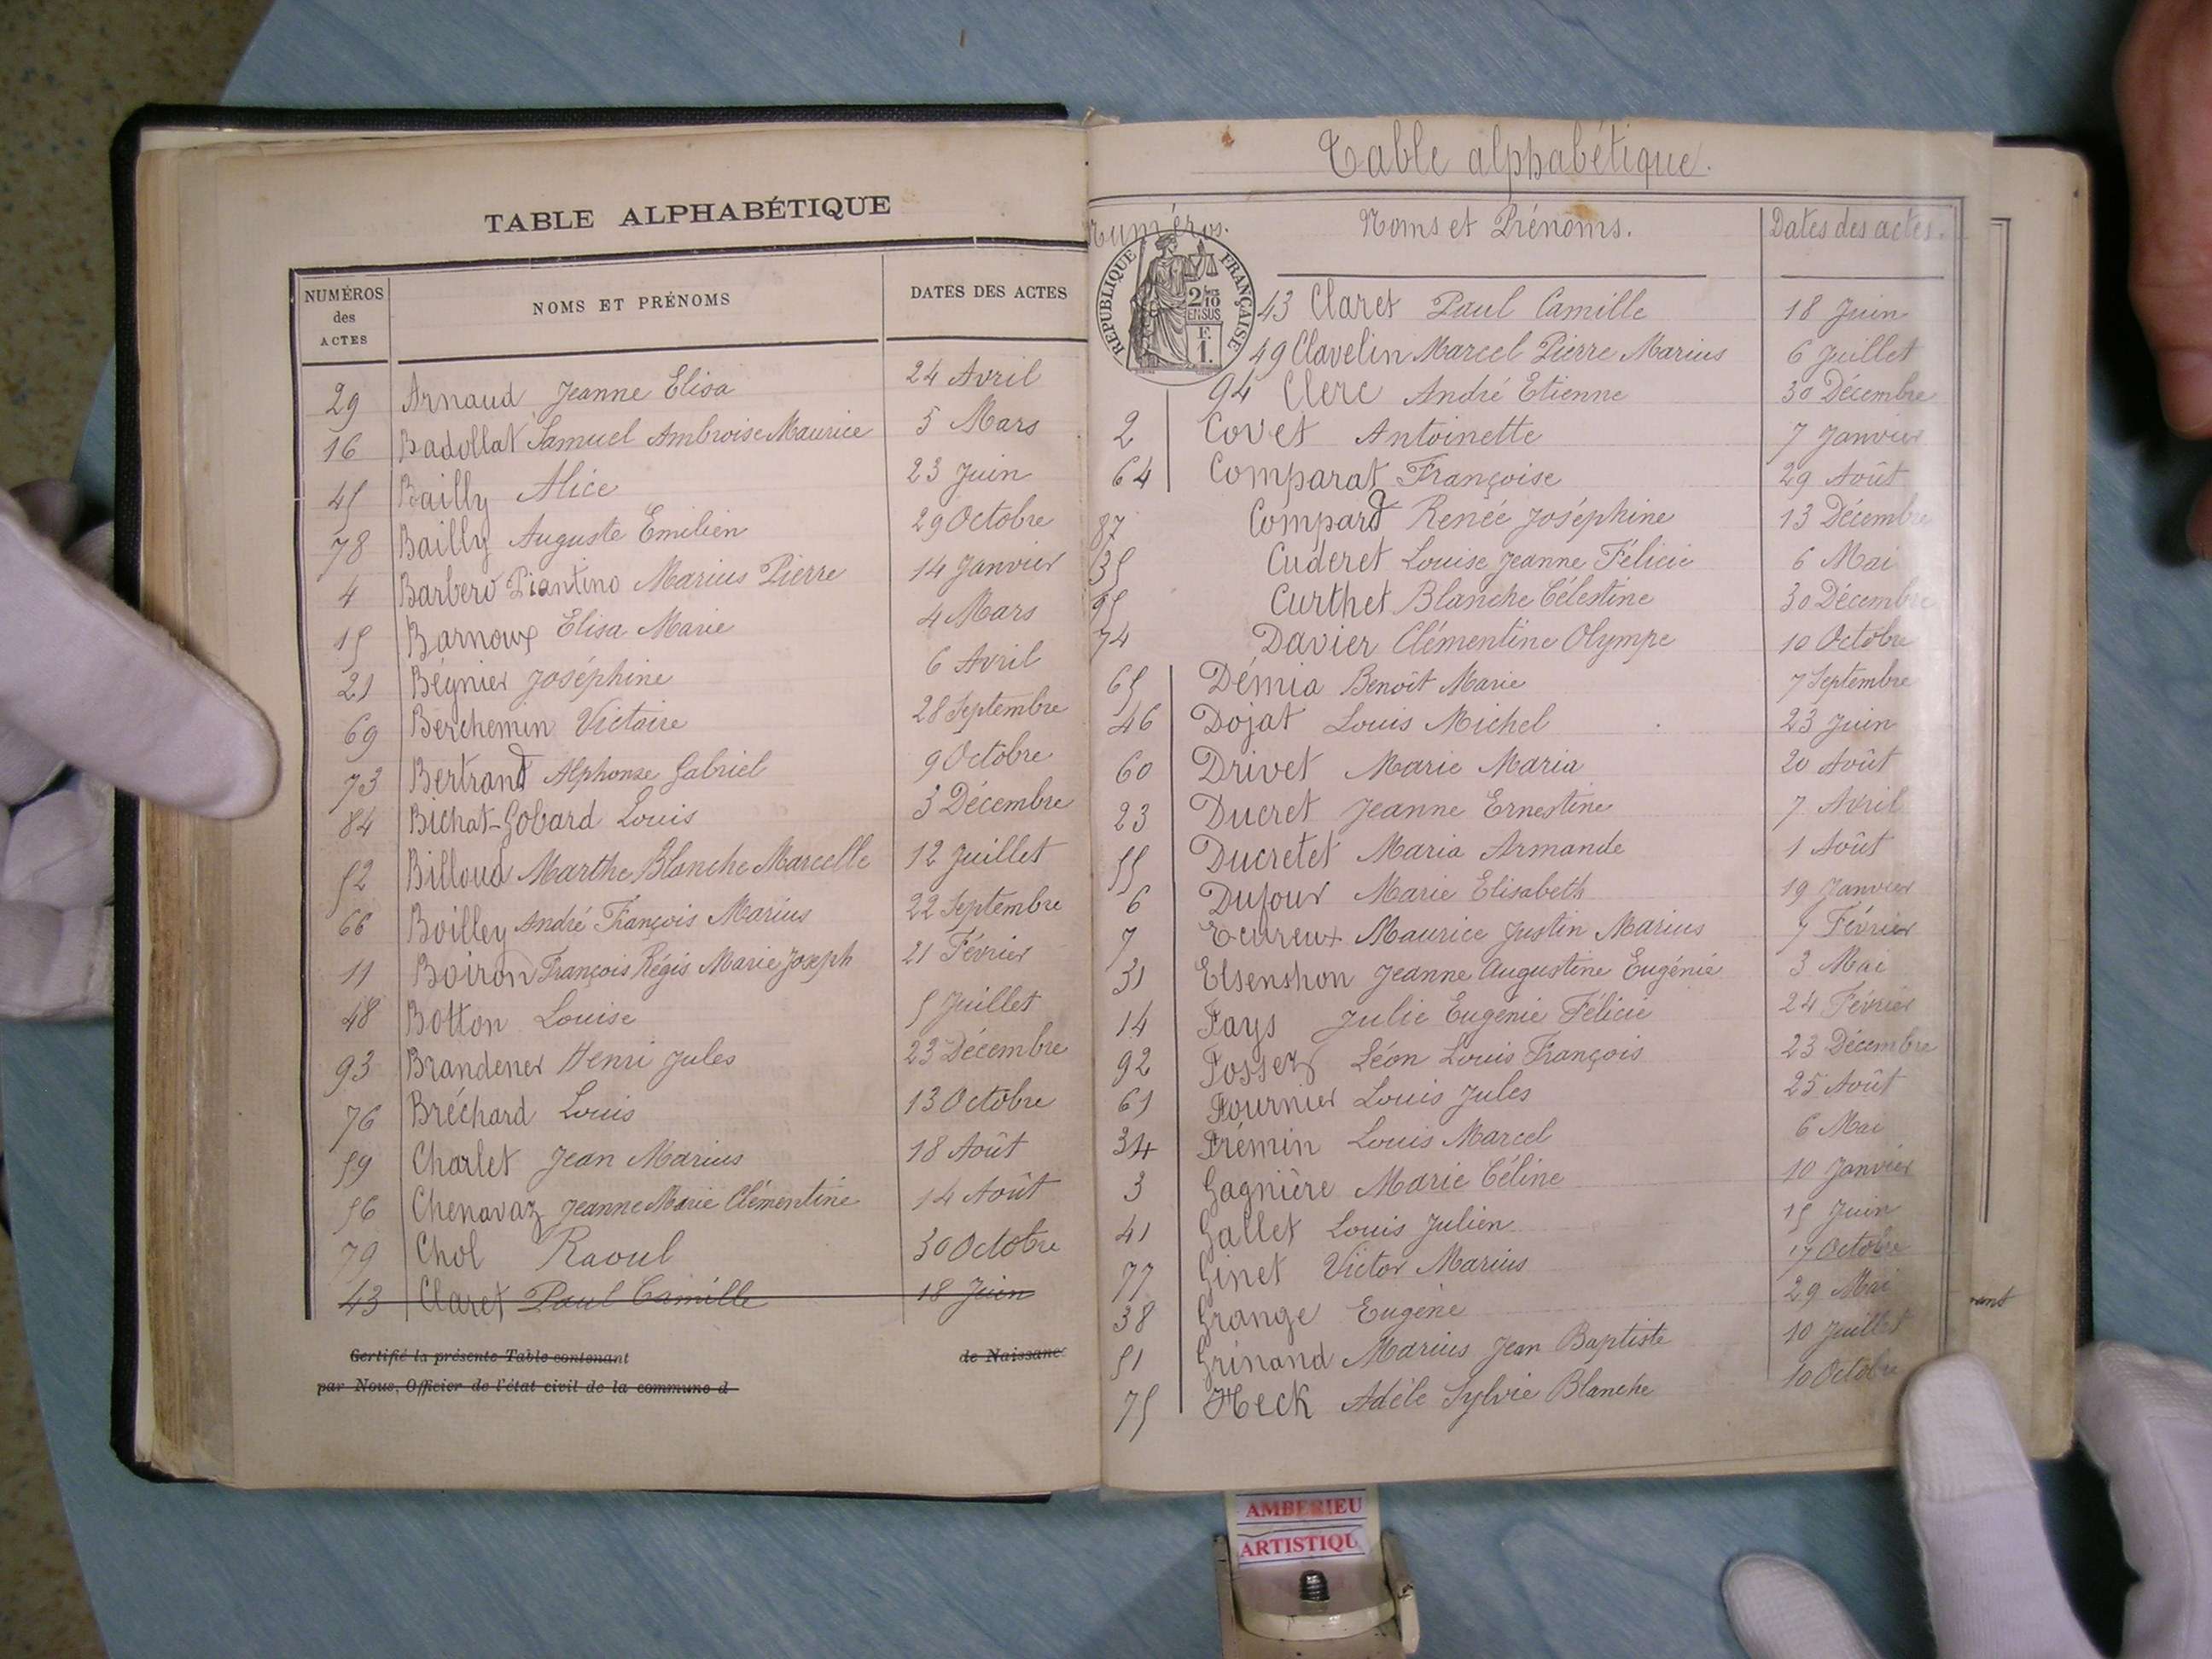 TABLE ALPHABÉTIQUE
NUMÉROS des ACTES NOMS ET PRÉNOMS DATES DES ACTES
29 Arnaud Jeanne Elisa 24 Avril
16 Badollat Samuel Ambroise Maurice 5 Mars
45 Bailly Alice 23 Juin
78 Bailly Auguste Emilien 29 Octobre
4 Barbero Piantino Marius Pierre 14 Janvier
15 Barnoux Elisa Marie 4 Mars
21 Bégnier Joséphine 6 Avril
69 Berchemin Victoire 28 Septembre
73 Bertrand Alphonse Gabriel 9 Octobre
84 Bichat-Gobard Louis 3 Décembre
52 Billoud Marthe Blanche Marcelle 12 Juillet
66 Boilley André François Marius 22 Septembre
11 Boiron François Régis Marie Joseph 21 Février
48 Botton Louise 5 Juillet
93 Brandener Henri Jules 23 Décembre
76 Bréchard Louis 13 Octobre
59 Charlet Jean Marius 18 Août
56 Chenavaz Jeanne Marie Clémentine 14 Août
79 Chol Raoul 30 Octobre
43 Claret Paul Camille 18 Juin
Certifié la présente Table contenant de Naissance
par Nous, Officier de l'état civil de la commune d
Table alphabétique.
Numéros. Noms et Prénoms. Dates des actes.
RÉPUBLIQUE FRANÇAISE
2/10
EN SUS
F.
1.
43 Claret Paul Camille 18 Juin
49 Clavelin Marcel Pierre Marius 6 Juillet
94 Clerc André Etienne 30 Décembre
2 Covet Antoinette 7 Janvier
64 Comparat Françoise 29 Août
87 Compard Renée Joséphine 13 Décembre
35 Cuderet Louise Jeanne Félicie 6 Mai
95 Curthet Blanche Célestine 30 Décembre
74 Davier Clémentine Olympe 10 Octobre
65 Démia Benoît Marie 7 Septembre
46 Dojat Louis Michel 23 Juin
60 Drivet Marie Maria 20 Août
23 Ducret Jeanne Ernestine 7 Avril
55 Ducretet Maria Armande 1 Août
6 Dufour Marie Elisabeth 19 Janvier
7 Ecureux Maurice Justin Marius 7 Février
31 Elsenshon Jeanne Augustine Eugénie 3 Mai
14 Fays Julie Eugénie Félicie 24 Février
92 Fossez Léon Louis François 23 Décembre
61 Fournier Louis Jules 25 Août
34 Frémin Louis Marcel 6 Mai
3 Gagnière Marie Céline 10 Janvier
41 Gallet Louis Julien 15 Juin
77 Ginet Victor Marius 17 Octobre
38 Grange Eugène 29 Mai
51 Grinand Marius Jean Baptiste 10 Juillet
75 Heck Adèle Sylvie Blanche 10 Octobre
AMBERIEU
ARTISTIQU